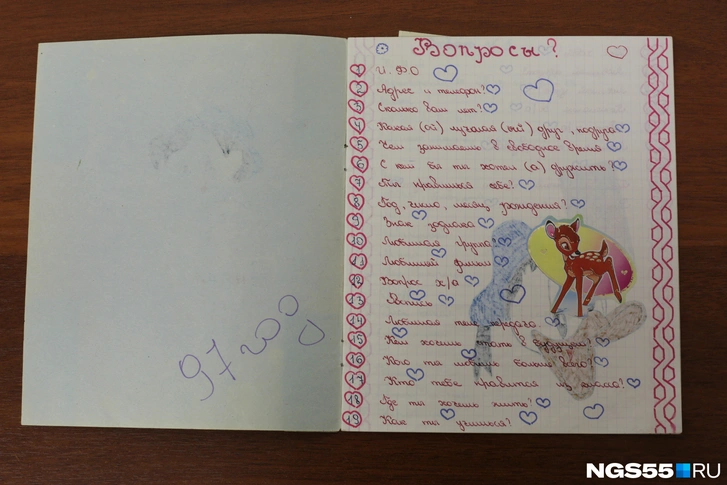 97 год
Вопросы?
1 И. ФО
2 Адрес и телефон?
3 Сколько вам лет?
4 Какая (ой) лучшая (ий) друг, подруга
5 Чем занимаешь в свободное время
6 С кем бы ты хотел (а) дружить?
7 Ты нравишься себе?
8 Год, число, месяц рождения?
9 Знак зодиака
10 Любимая группа?
11 Любимый фильм
12 Вопрос х/а
13
14 Любимая теле передача.
15 Кем хочешь стать в будущем?
16 Кого ты любишь больше всего?
17 Кто тебе нравится из класса?
18 Где ты хочешь жить?
19 Как ты учишься?
NGS55 RU